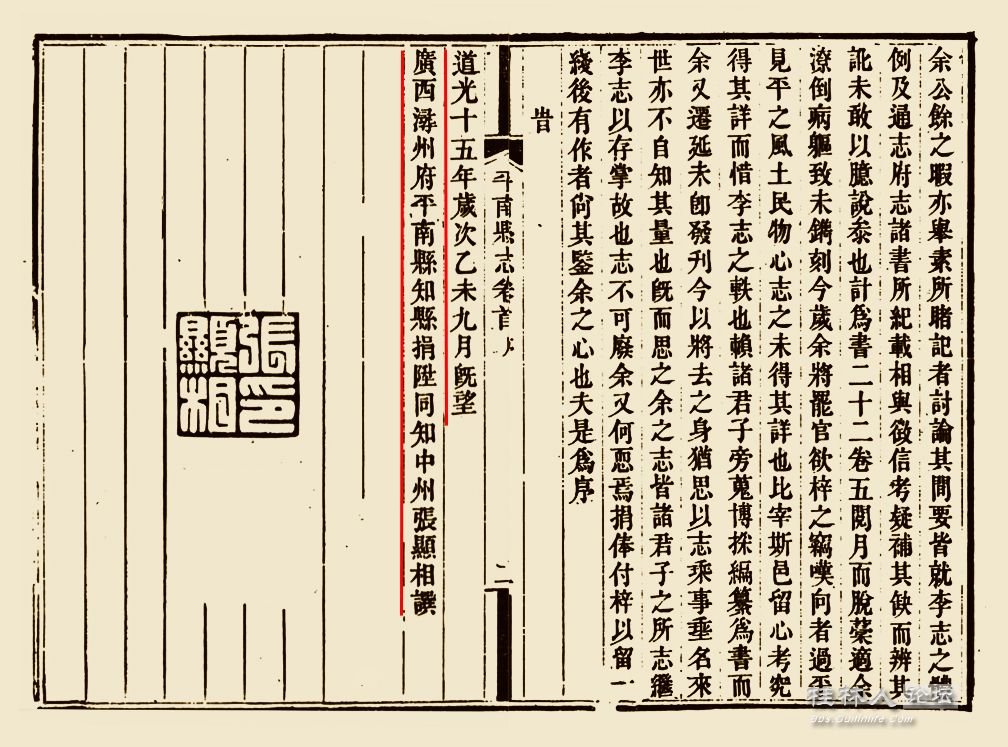 余公餘之暇亦舉素所睹記者討論其間要皆就李志之體
例及通志府志諸書所紀載相與徵信考疑補其缺而辨其
訛未敢以臆說叅也計爲書二十二卷五閱月而脫藁適余
潦倒病軀致未鐫刻今歲余將罷官欲梓之竊嘆向者過平
見平之風土民物心志之未得其詳也比宰斯邑留心考究
得其詳而惜李志之軼也賴諸君子旁蒐博採編纂爲書而
余又遷延未卽發刋今以將去之身猶思以志乘事埀名來
世亦不自知其量也旣而思之余之志皆諸君子之所志繼
李志以存掌故也志不可廢余又何恧焉捐俸付梓以留一
綫後有作者尙其鍳余之心也夫是爲序
旹
平南縣志卷首 序
二
道光十五年歲次乙未九月旣望
廣西潯州府平南縣知縣捐陞同知中州張顯相譔
張顯相印
桂林人论坛
Bbs.Guilinlife.Com